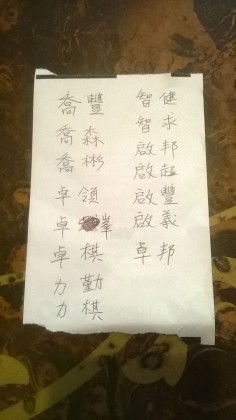 喬豐
喬森
喬彬
卓領
卓峯
卓棋
力勤
力棋
智健
智求
啟邦
啟超
啟豐
啟義
卓邦